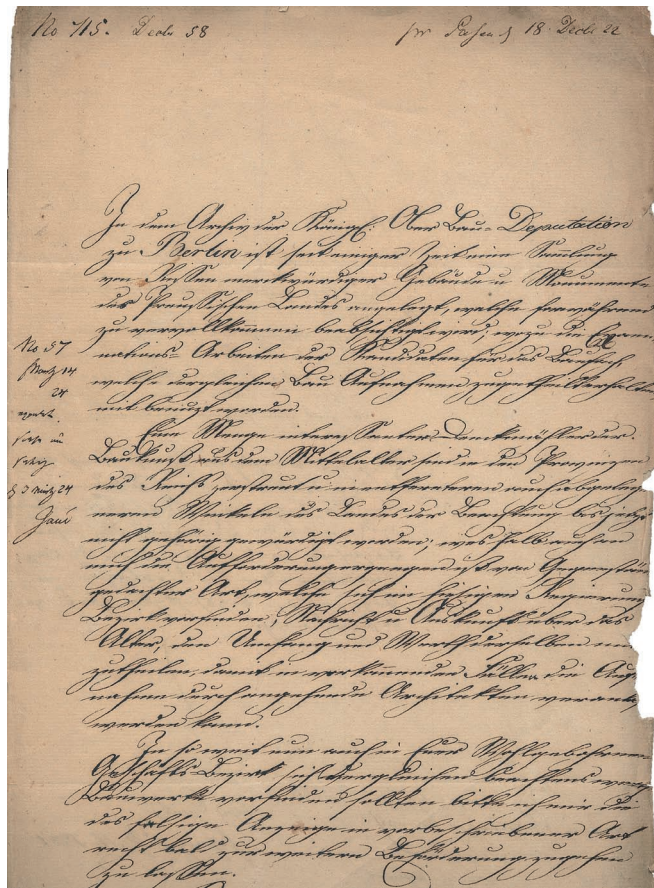 No 715. Decbr 58
pr Posen d 18. Decbr 22
In dem Archiv der Königl: Ober Bau- Deputation
zu Berlin ist seit einiger Zeit eine Samlung
von Rissen merkwürdiger Gebäude u Monumente
des Preussischen Landes angelegt, welche fortwährend
zu vervollkommnen beabsichtigt wird, wozu die Exami-
nations- Arbeiten der Kandidaten für das Baufach,
welche dergleichen Bau Aufnahmen zugetheilt erhalten
mit benutzt werden.
No 57
Maertz 14
24
d 3 Maertz 24
Eine Menge interessanter Denkmähler der
Baukunst aus dem Mittelalter sind in den Provinzen
des Reichs zerstreut u in entfernteren auch abgelege
neren Winkeln des Landes der Beachtung bis jetzt
nicht gehörig gewürdigt worden, weshalb auch an
mich die Aufforderung ergangen ist von Gegenstän
gedachter Art, welche sich im hiesigen Regierungs
Bezirk vorfinden, Nachricht u Auskunft über das
Alter, den Umfang und Werth derselben mi
zutheilen, damit in vorkommenden Fällen die Auf
nahme durch angehende Architekten veranla
werden kann.
In so weit nun auch in Euer Wohlgebohrnen
Geschäfts-Bezirk sich dergleichen beachtenswerthe
Bauwerke vorfinden sollten bitte ich mir die
desfalsige Anzeige in vorbeschriebener Art
recht bald zur weitern Beförderung zugehen
zu lassen.